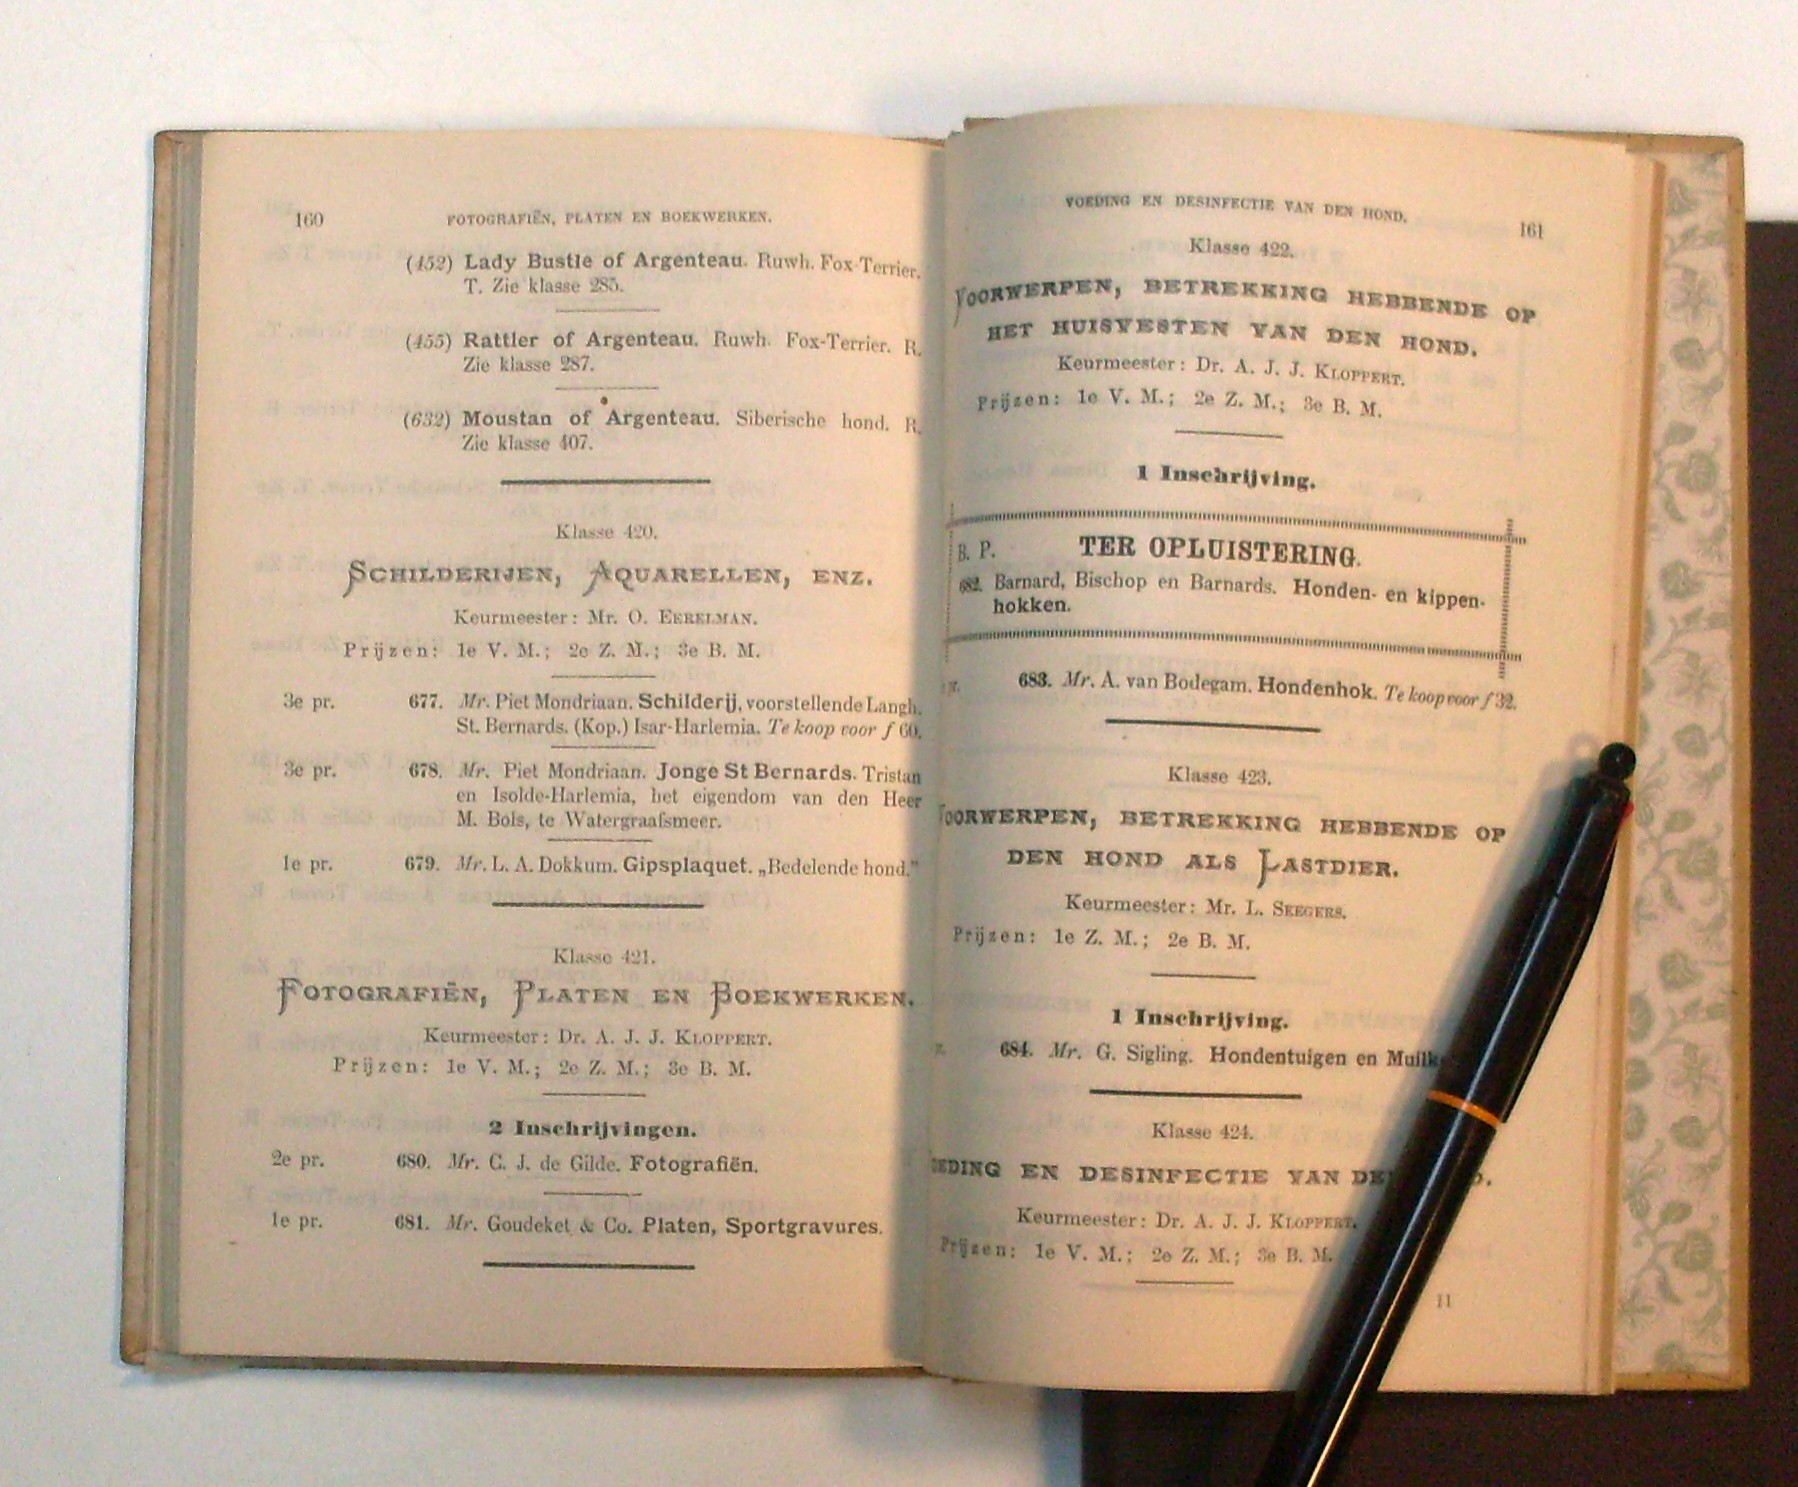 160 FOTOGRAFIËN, PLATEN EN BOEKWERKEN.
(452) Lady Bustle of Argenteau. Ruwh. Fox-Terrier.
T. Zie klasse 285.
(455) Rattler of Argenteau. Ruwh. Fox-Terrier. R.
Zie klasse 287.
(632) Moustan of Argenteau. Siberische hond. R.
Zie klasse 407.
Klasse 420.
SCHILDERIJEN, AQUARELLEN, ENZ.
Keurmeester: Mr. O. EERELMAN.
Prijzen: 1e V. M.; 2e Z. M.; 3e B. M.
3e pr. 677. Mr. Piet Mondriaan. Schilderij, voorstellende Langh.
St. Bernards. (Kop.) Isar-Harlemia. Te koop voor f 60.
3e pr. 678. Mr. Piet Mondriaan. Jonge St Bernards. Tristan
en Isolde-Harlemia, het eigendom van den Heer
M. Bols, te Watergraafsmeer.
1e pr. 679. Mr. L. A. Dokkum. Gipsplaquet. „Bedelende hond.”
Klasse 421.
FOTOGRAFIËN, PLATEN EN BOEKWERKEN.
Keurmeester: Dr. A. J. J. KLOPPERT.
Prijzen: 1e V. M.; 2e Z. M.; 3e B. M.
2 Inschrijvingen.
2e pr. 680. Mr. C. J. de Gilde. Fotografiën.
1e pr. 681. Mr. Goudeket & Co. Platen, Sportgravures.
VOEDING EN DESINFECTIE VAN DEN HOND. 161
Klasse 422.
VOORWERPEN, BETREKKING HEBBENDE OP
HET HUISVESTEN VAN DEN HOND.
Keurmeester: Dr. A. J. J. KLOPPERT.
Prijzen: 1e V. M.; 2e Z. M.; 3e B. M.
1 Inschrijving.
B. P. TER OPLUISTERING.
682. Barnard, Bischop en Barnards. Honden- en kippen-
hokken.
683. Mr. A. van Bodegam. Hondenhok. Te koop voor f 32.
Klasse 423.
VOORWERPEN, BETREKKING HEBBENDE OP
DEN HOND ALS LASTDIER.
Keurmeester: Mr. L. SEEGERS.
Prijzen: 1e Z. M.; 2e B. M.
1 Inschrijving.
684. Mr. G. Sigling. Hondentuigen en Muilk
Klasse 424.
EDING EN DESINFECTIE VAN DE D.
Keurmeester: Dr. A. J. J. KLOPPERT.
Prijzen: 1e V. M.; 2e Z. M.; 3e B. M.
11